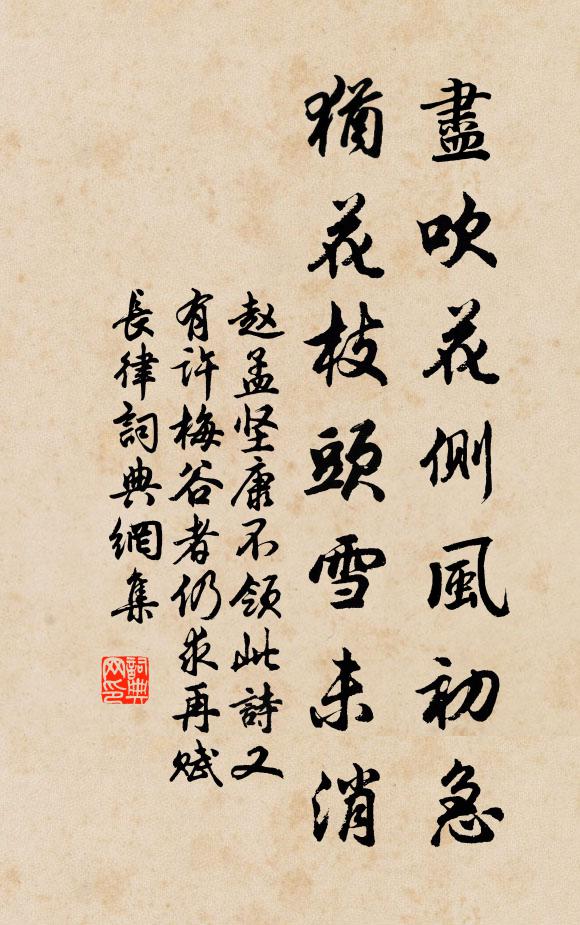 盡吹花側風初急
猶花枝頭雪未消
赵孟坚康不领此詩又
有许梅谷者仍求再赋
長律詞典網集
詞典网印